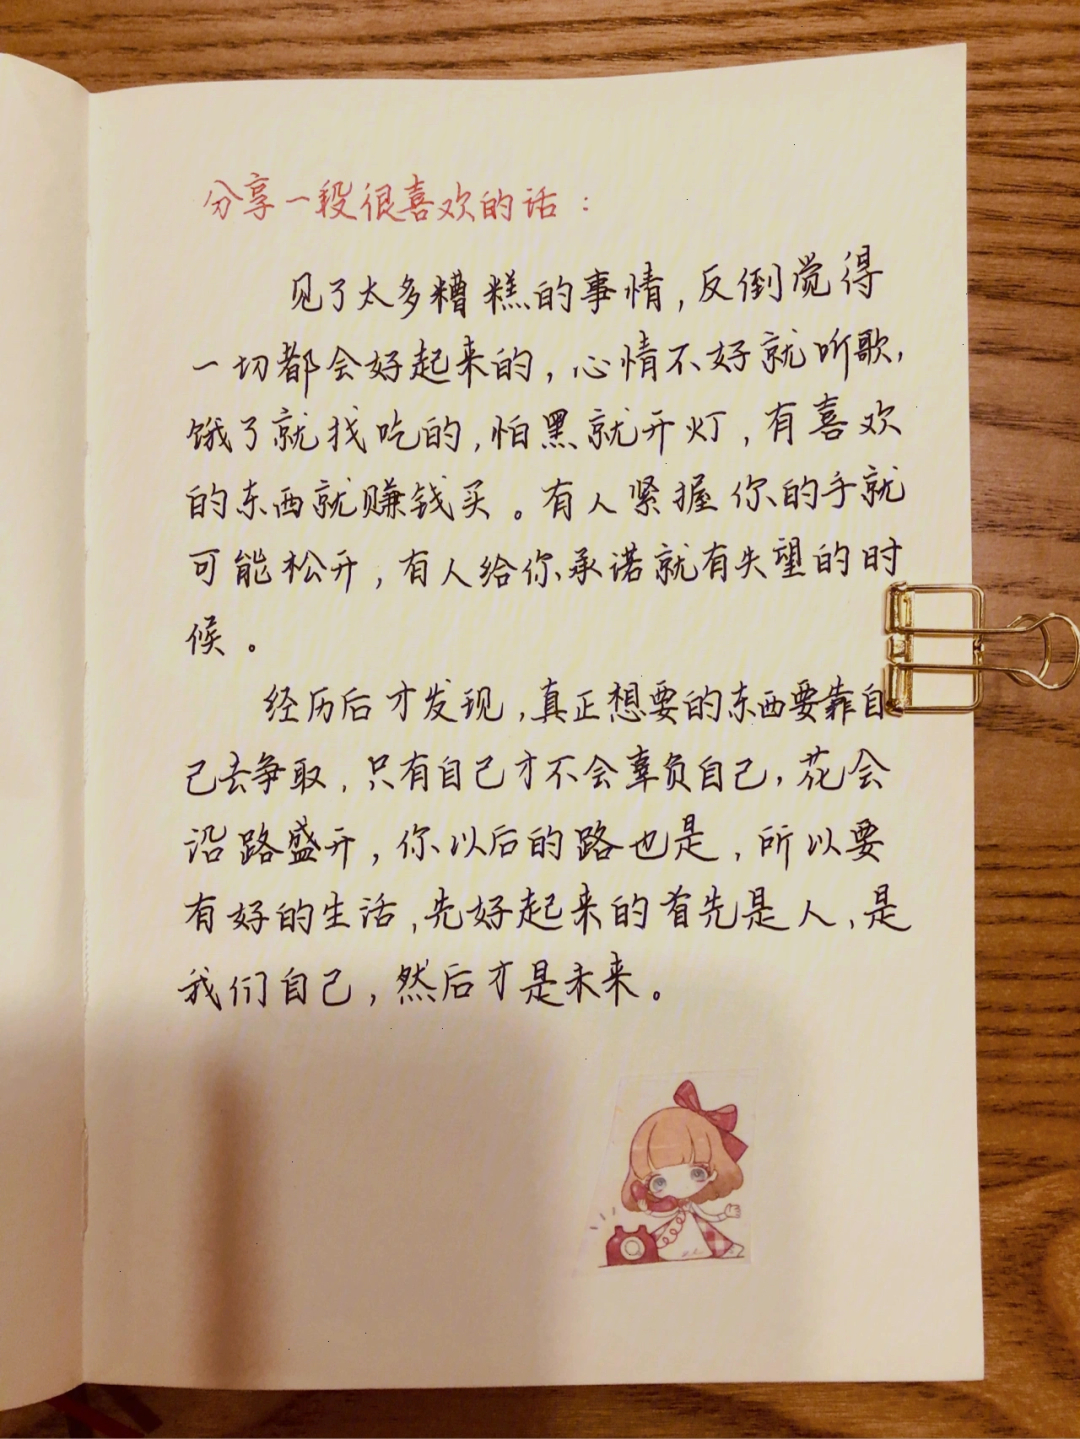 分享一段很喜欢的话：
见了太多糟糕的事情，反倒觉得
一切都会好起来的，心情不好就听歌，
饿了就找吃的，怕黑就开灯，有喜欢
的东西就赚钱买。有人紧握你的手就
可能松开，有人给你承诺就有失望的时
候。
经历后才发现，真正想要的东西要靠自
己去争取，只有自己才不会辜负自己，花会
沿路盛开，你以后的路也是，所以要
有好的生活，先好起来的首先是人，是
我们自己，然后才是未来。